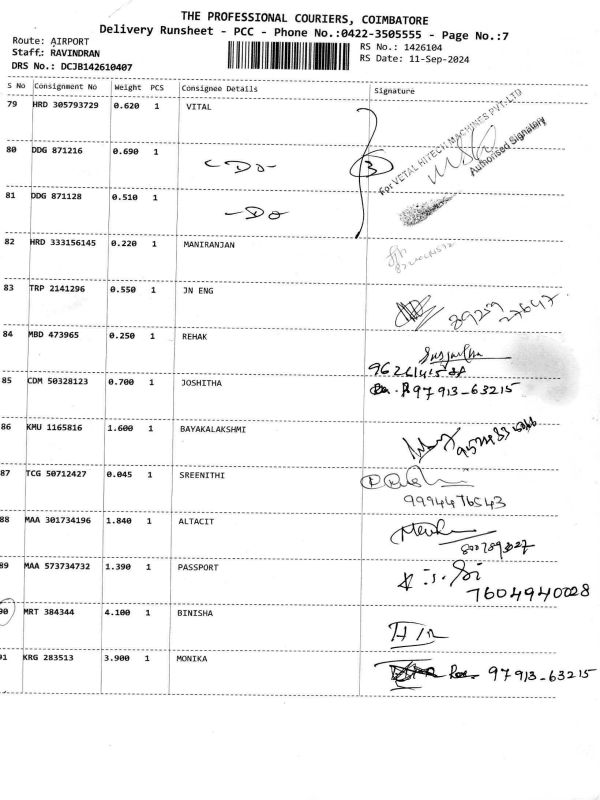 THE PROFESSIONAL COURIERS, COIMBATORE
Delivery Runsheet - PCC - Phone No.:0422-3505555 - Page No.:7
Route: AIRPORT
RS No.: 1426104
Staff: RAVINDRAN
RS Date: 11-Sep-2024
DRS No.: DCJB142610407
S No Consignment No Weight PCS Consignee Details Signature
79 HRD 305793729 0.620 1 VITAL
For VETAL HITECH MACHINES PVT. LTD
Authorised Signatory
80 DDG 871216 0.690 1 -Do- 3
81 DDG 871128 0.510 1 -Do
82 HRD 333156145 0.220 1 MANIRANJAN
83 TRP 2141296 0.550 1 JN ENG
89259 27647
84 MBD 473965 0.250 1 REHAK
85 CDM 50328123 0.700 1 JOSHITHA 97913-63215
86 KMU 1165816 1.600 1 BAYAKALAKSHMI
87 TCG 50712427 0.045 1 SREENITHI
9994476543
88 MAA 301734196 1.840 1 ALTACIT
89 MAA 573734732 1.390 1 PASSPORT
7604940028
90 MRT 384344 4.100 1 BINISHA
91 KRG 283513 3.900 1 MONIKA 97913-63215